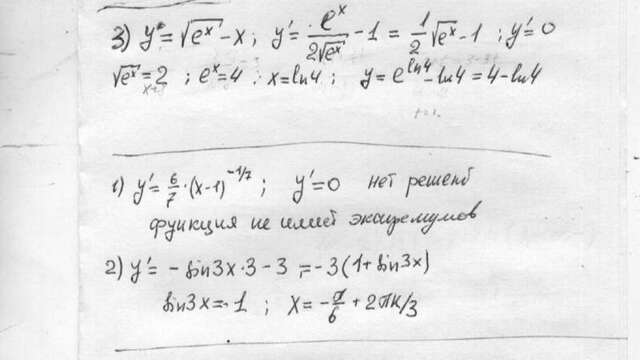 3) y = √eˣ - x ; y' = eˣ/2√eˣ - 1 = 1/2 √eˣ - 1 ; y' = 0
√eˣ = 2 ; eˣ = 4 ; x = ln4 ; y = e^ln4 - ln4 = 4 - ln4
1) y' = 6/7 · (x-1)^-1/7 ; y' = 0 нет решений
функция не имеет экстремумов
2) y' = - sin3x · 3 - 3 = -3(1 + sin3x)
sin3x = -1 ; x = -π/6 + 2πk/3